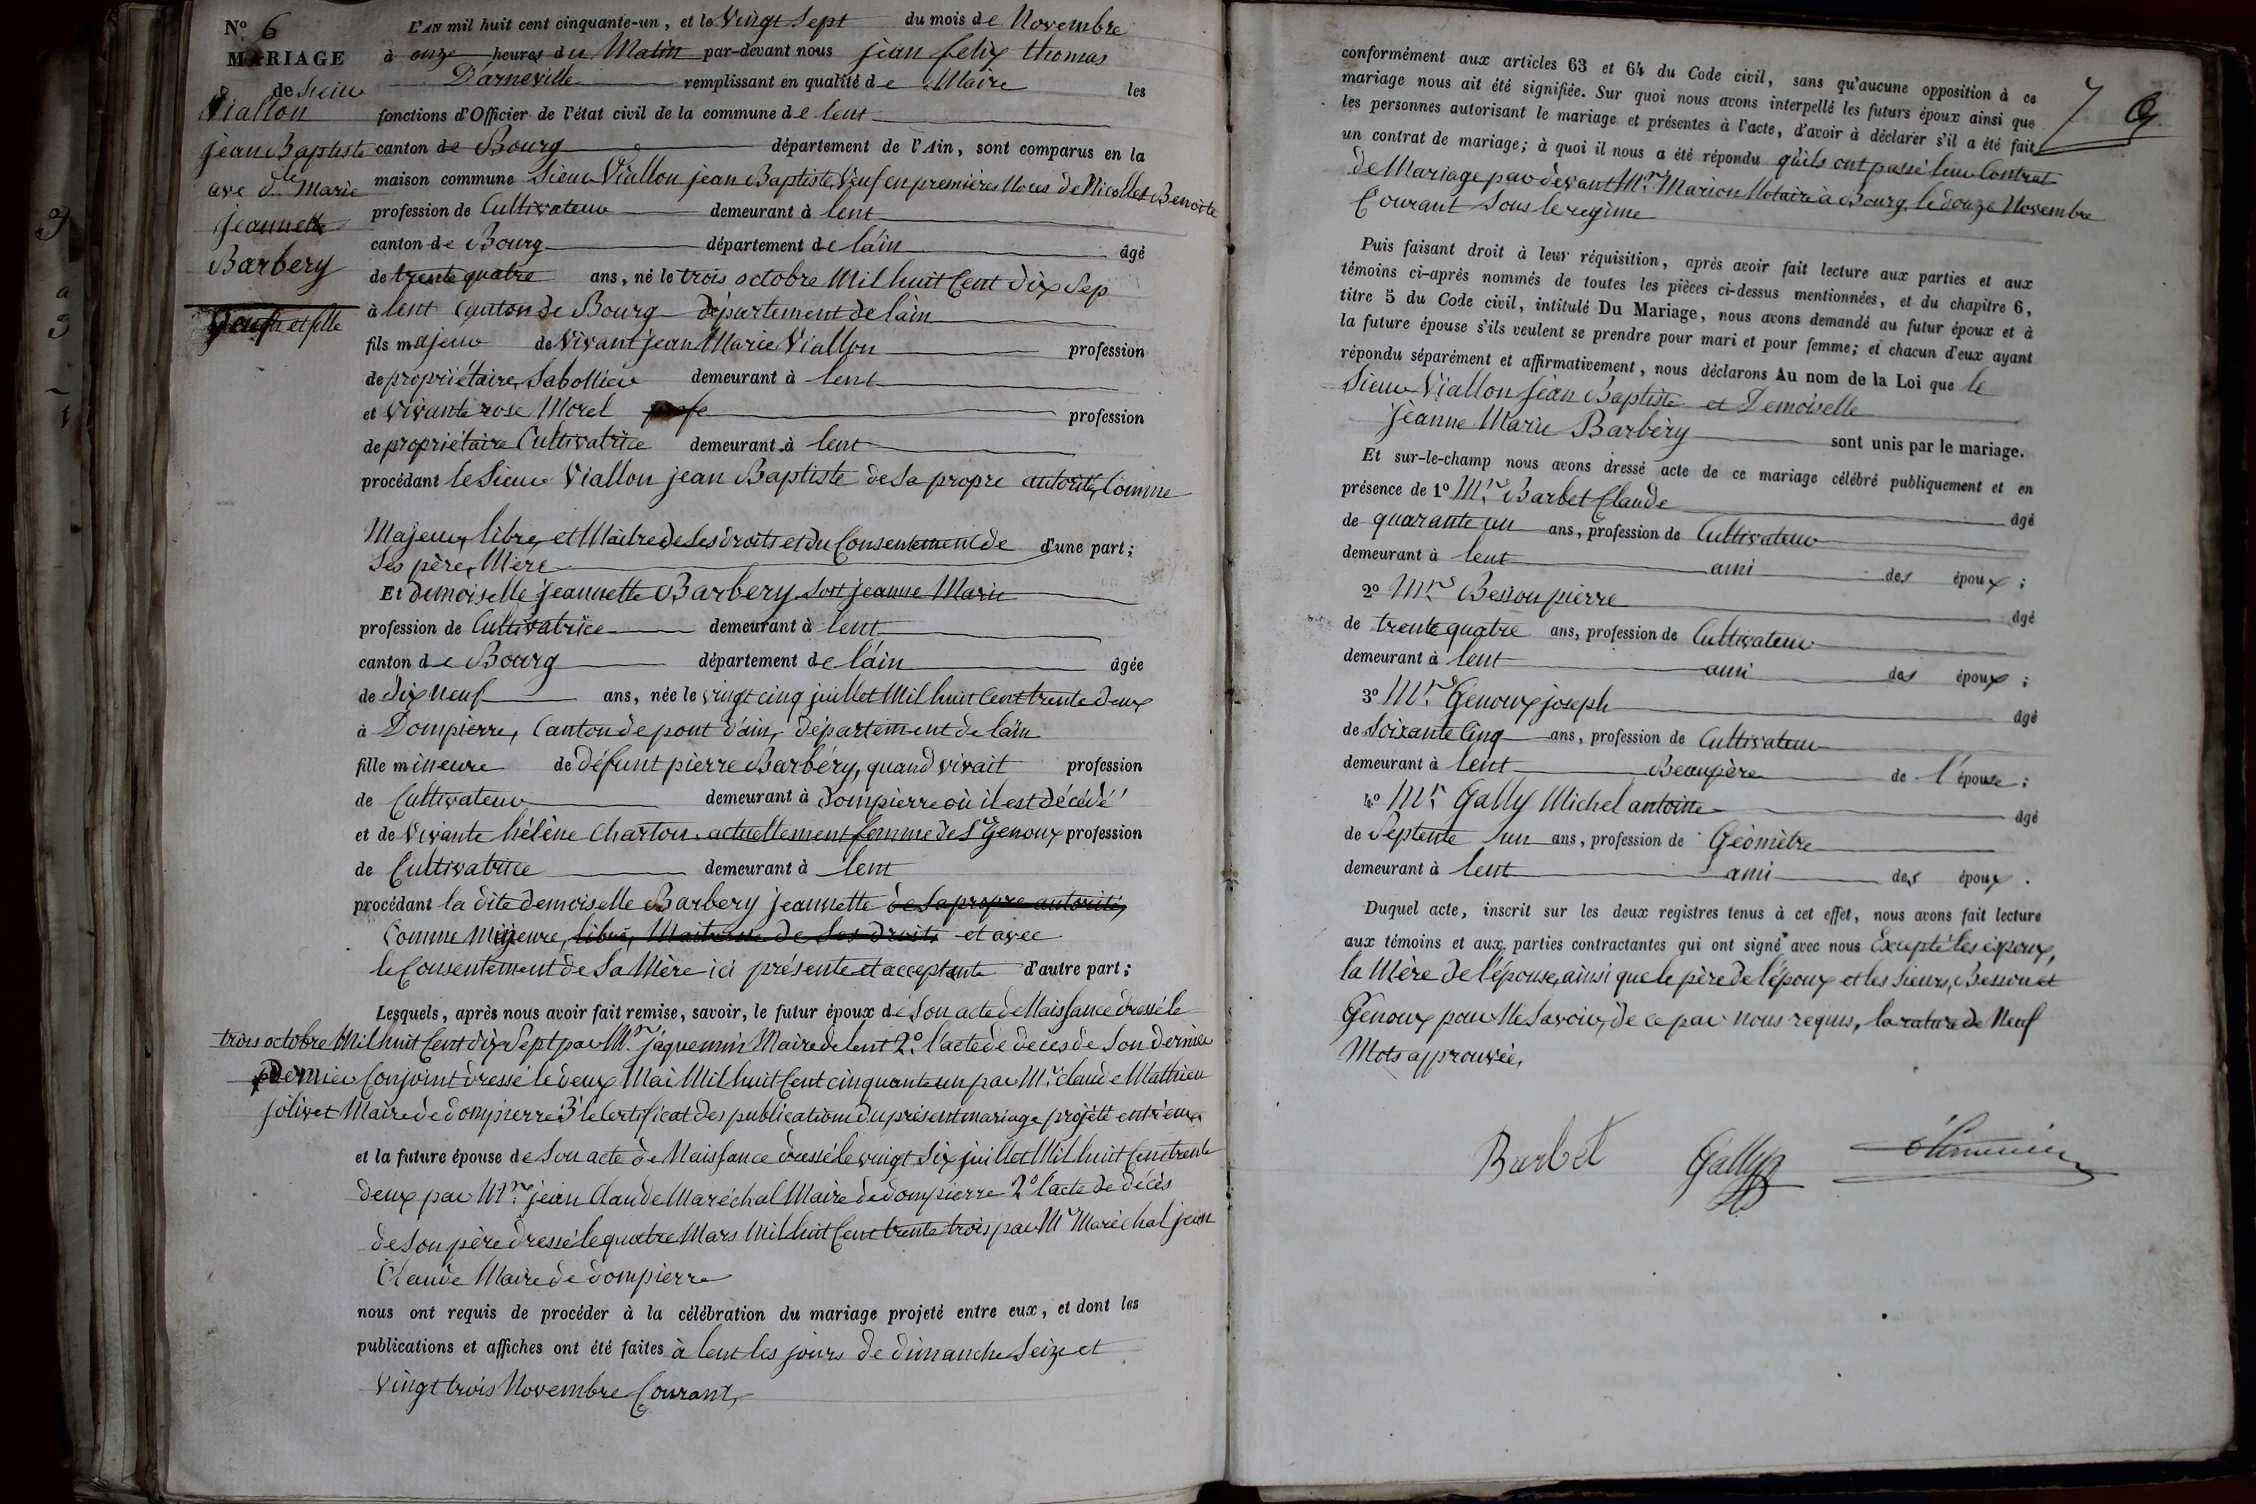 N.º 6
MARIAGE
de Sieur
Viallon
jean Baptiste
avec d.lle Marie
jeannette
Barbery
L'AN mil huit cent cinquante-un, et le Vingt Sept du mois de Novembre
à onze heures du Matin par-devant nous jean felix thomas
Darneville remplissant en qualité de Maire les
fonctions d'Officier de l'état civil de la commune de lent
canton de Bourg département de l'Ain, sont comparus en la
maison commune Sieur Viallon jean Baptiste, Veuf en premières Noces de Nicollet Benoite
profession de Cultivateur demeurant à lent
canton de Bourg département de láin âgé
de trente quatre ans, né le trois octobre Mil huit Cent dix Sep
à lent Canton de Bourg département de láin
fils majeur de Vivant jean Marie Viallon profession
de propriétaire, Sabottier demeurant à lent
et Vivante rose Morel profession
de propriétaire Cultivatrice demeurant à lent
procédant le Sieur Viallon jean Baptiste de Sa propre autorité, Comme
Majeur, libre, et Maitre de Ses droits et du Consentement de d'une part;
Ses père, Mère
Et demoiselle jeannette Barbery soit jeanne Marie
profession de Cultivatrice demeurant à lent
canton de Bourg département de láin âgée
de dix neuf ans, née le vingt cinq juillet Mil huit Cent trente deux
à Dompierre, Canton de pont d'ain, département de láin
fille mineure de défunt pierre Barbéry, quand vivait profession
de Cultivateur demeurant à dompierre où il est décédé
et de Vivante hélène Charton actuellement femme de Sr. Genoux profession
de Cultivatrice demeurant à lent
procédant la dite demoiselle Barbery jeannette de Sa propre autorité,
Comme Mineure, libre, Maitresse de Ses droits et avec
le Consentement de Sa Mère ici présente et acceptante d'autre part;
Lesquels, après nous avoir fait remise, savoir, le futur époux de Son acte de Naissance dressé le
trois octobre Mil huit Cent dix Sept par Mr. Jaquemin Maire de lent 2.º l'acte de décès de Son dernier
Dernier Conjoint dressé le deux Mai Mil huit Cent cinquante un par Mr. claude Mathieu
jolivet Maire de dompierre 3º le Certificat des publications du présent mariage projété entr'eux
et la future épouse de Son acte de Naissance dressé le vingt Six juillet Mil huit Cent trente
deux par Mr. jean Claude Maréchal Maire de dompierre 2º l'acte de décès
de Son père dressé le quatre Mars Mil huit Cent trente trois par Mr. Maréchal jean
Claude Maire de dompierre
nous ont requis de procéder à la célébration du mariage projeté entre eux, et dont les
publications et affiches ont été faites à lent les jours de dimanche Seize et
vingt trois Novembre Courant,
conformément aux articles 63 et 64 du Code civil, sans qu'aucune opposition à ce
mariage nous ait été signifiée. Sur quoi nous avons interpellé les futurs époux ainsi que
les personnes autorisant le mariage et présentes à l'acte, d'avoir à déclarer s'il a été fait
un contrat de mariage; à quoi il nous a été répondu qu'ils ont passé leur Contrat
de Mariage par devant Mr. Marion Notaire à Bourg, le douze Novembre
Courant Sous le regime
Puis faisant droit à leur réquisition, après avoir fait lecture aux parties et aux
témoins ci-après nommés de toutes les pièces ci-dessus mentionnées, et du chapitre 6,
titre 5 du Code civil, intitulé Du Mariage, nous avons demandé au futur époux et à
la future épouse s'ils veulent se prendre pour mari et pour femme; et chacun d'eux ayant
répondu séparément et affirmativement, nous déclarons Au nom de la Loi que le
Sieur Viallon Jean Baptiste et Demoiselle
jeanne Marie Barbèry sont unis par le mariage.
Et sur-le-champ nous avons dressé acte de ce mariage célébré publiquement et en
présence de 1º Mr. Barbet Claude âgé
de quarante un ans, profession de Cultivateur
demeurant à lent ami des époux;
2º Mr. Besson pierre âgé
de trente quatre ans, profession de Cultivateur
demeurant à lent ami des époux;
3º Mr. Genoux joseph âgé
de Soixante Cinq ans, profession de Cultivateur
demeurant à lent Beaupère de l'épouse;
4º Mr. Gally Michel antoine âgé
de Septente un ans, profession de Géomètre
demeurant à lent ami des époux.
Duquel acte, inscrit sur les deux registres tenus à cet effet, nous avons fait lecture
aux témoins et aux parties contractantes qui ont signé avec nous Excepté les époux,
la Mère de l'épouse, ainsi que le père de l'époux et les Sieurs, Besson et
Genoux pour Ne Savoir, de ce par nous requis, la rature de Neuf
Mots approuvée,
Barbet Gally